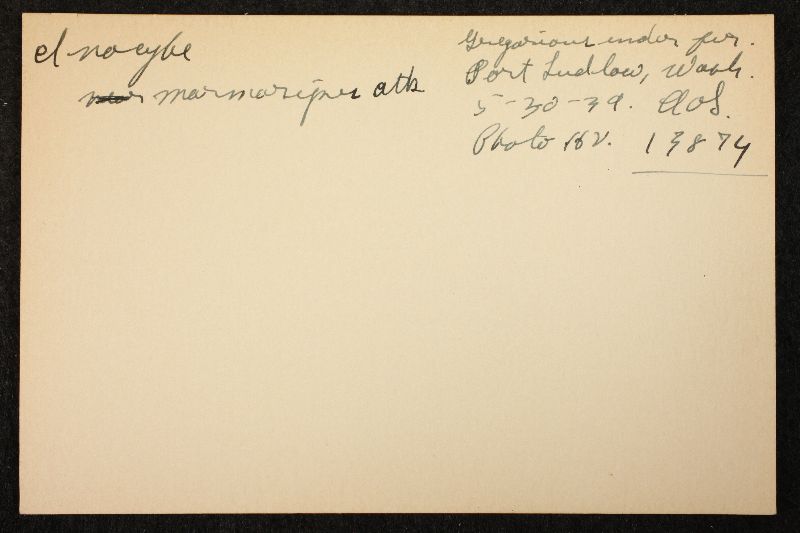 Inocybe
marmoripes Atk
Gregarious under fir.
Port Ludlow, Wash.
5-30-39. AHS.
Photo 13874